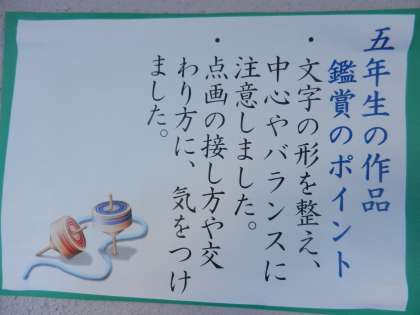 五年生の作品
鑑賞のポイント
・文字の形を整え、
中心やバランスに
注意しました。
・点画の接し方や交
わり方に、気をつけ
ました。